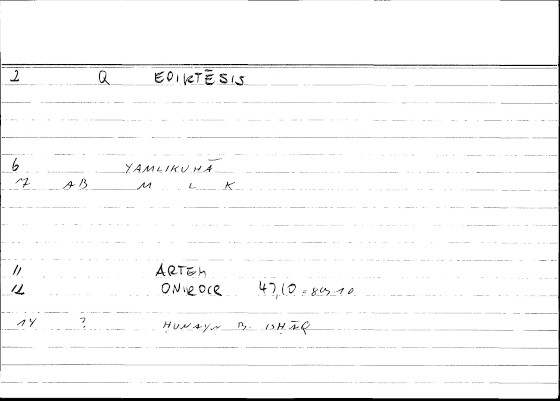 2 Q EDIKTĒSIS
6 YAMLIKUHĀ
7 AB M L K
11 ARTEM
12 ONIROCR 47,10 =
14 ? ḤUNAYN B. ISḤĀQ